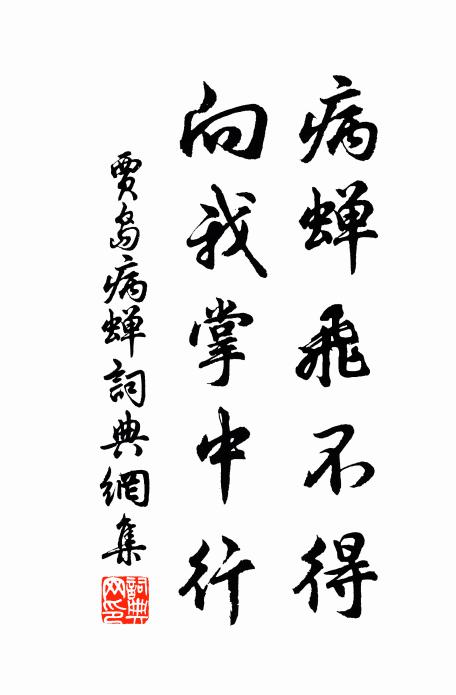 病蝉飛不得
向我掌中行
賈島病蝉詞典網集
詞典網印